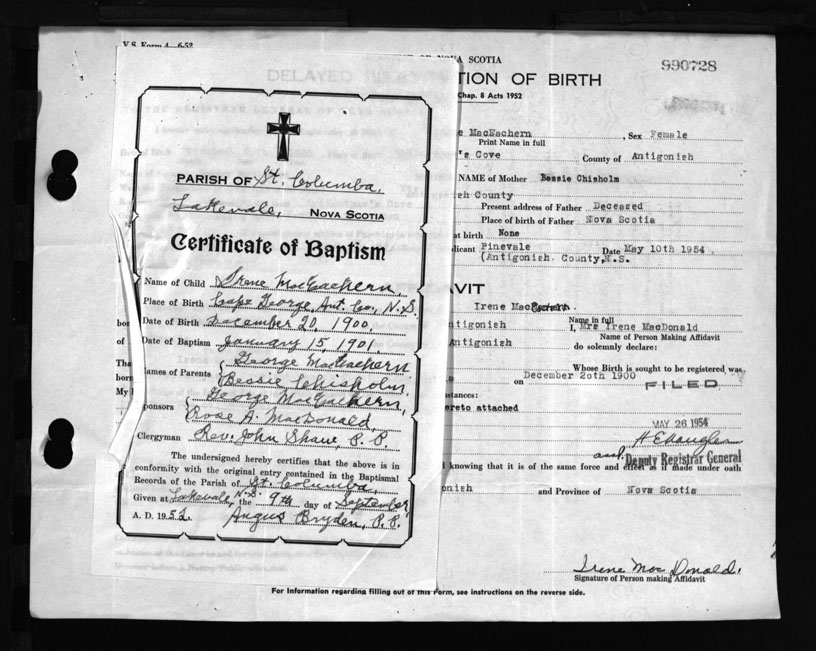 V.S. Form A 6-52
NOVA SCOTIA
990728
DELAYED
TION OF BIRTH
Chap. 8 Acts 1952
e MacEachern, Sex Female
Print Name in full
's Cove County of Antigonish
NAME of Mother Bessie Chisholm
sh County
Present address of Father Deceased
Place of birth of Father Nova Scotia
at birth None
licant Pinevale Date May 10th 1954
(Antigonish County, N.S.
AVIT
Irene MacEachern.
Name in full
ntigonish I, Mrs Irene MacDonald
Name of Person Making Affidavit
Antigonish do solemnly declare:
Whose Birth is sought to be registered was
on December 20th 1900
FILED
stances:
ereto attached
MAY 26 1954
Deputy Registrar General
knowing that it is of the same force and effect as if made under oath
onish and Province of Nova Scotia
Irene MacDonald.
Signature of Person making Affidavit
For Information regarding filling out of this Form, see instructions on the reverse side.
PARISH OF St. Columba,
Lakevale, NOVA SCOTIA
Certificate of Baptism
Name of Child Irene MacEachern
Place of Birth Cape George, Ant. Co., N.S.
Date of Birth December 20, 1900,
Date of Baptism January 15, 1901.
Names of Parents { George MacEachern
Bessie Chisholm,
ponsors { George MacEachern,
Rose A. MacDonald,
Clergyman Rev. John Shaw, P.P.
The undersigned hereby certifies that the above is in
conformity with the original entry contained in the Baptismal
Records of the Parish of St. Columba,
Given at Lakevale, N.S. the 9th day of September
A. D. 1952. Angus Bryden, P.P.